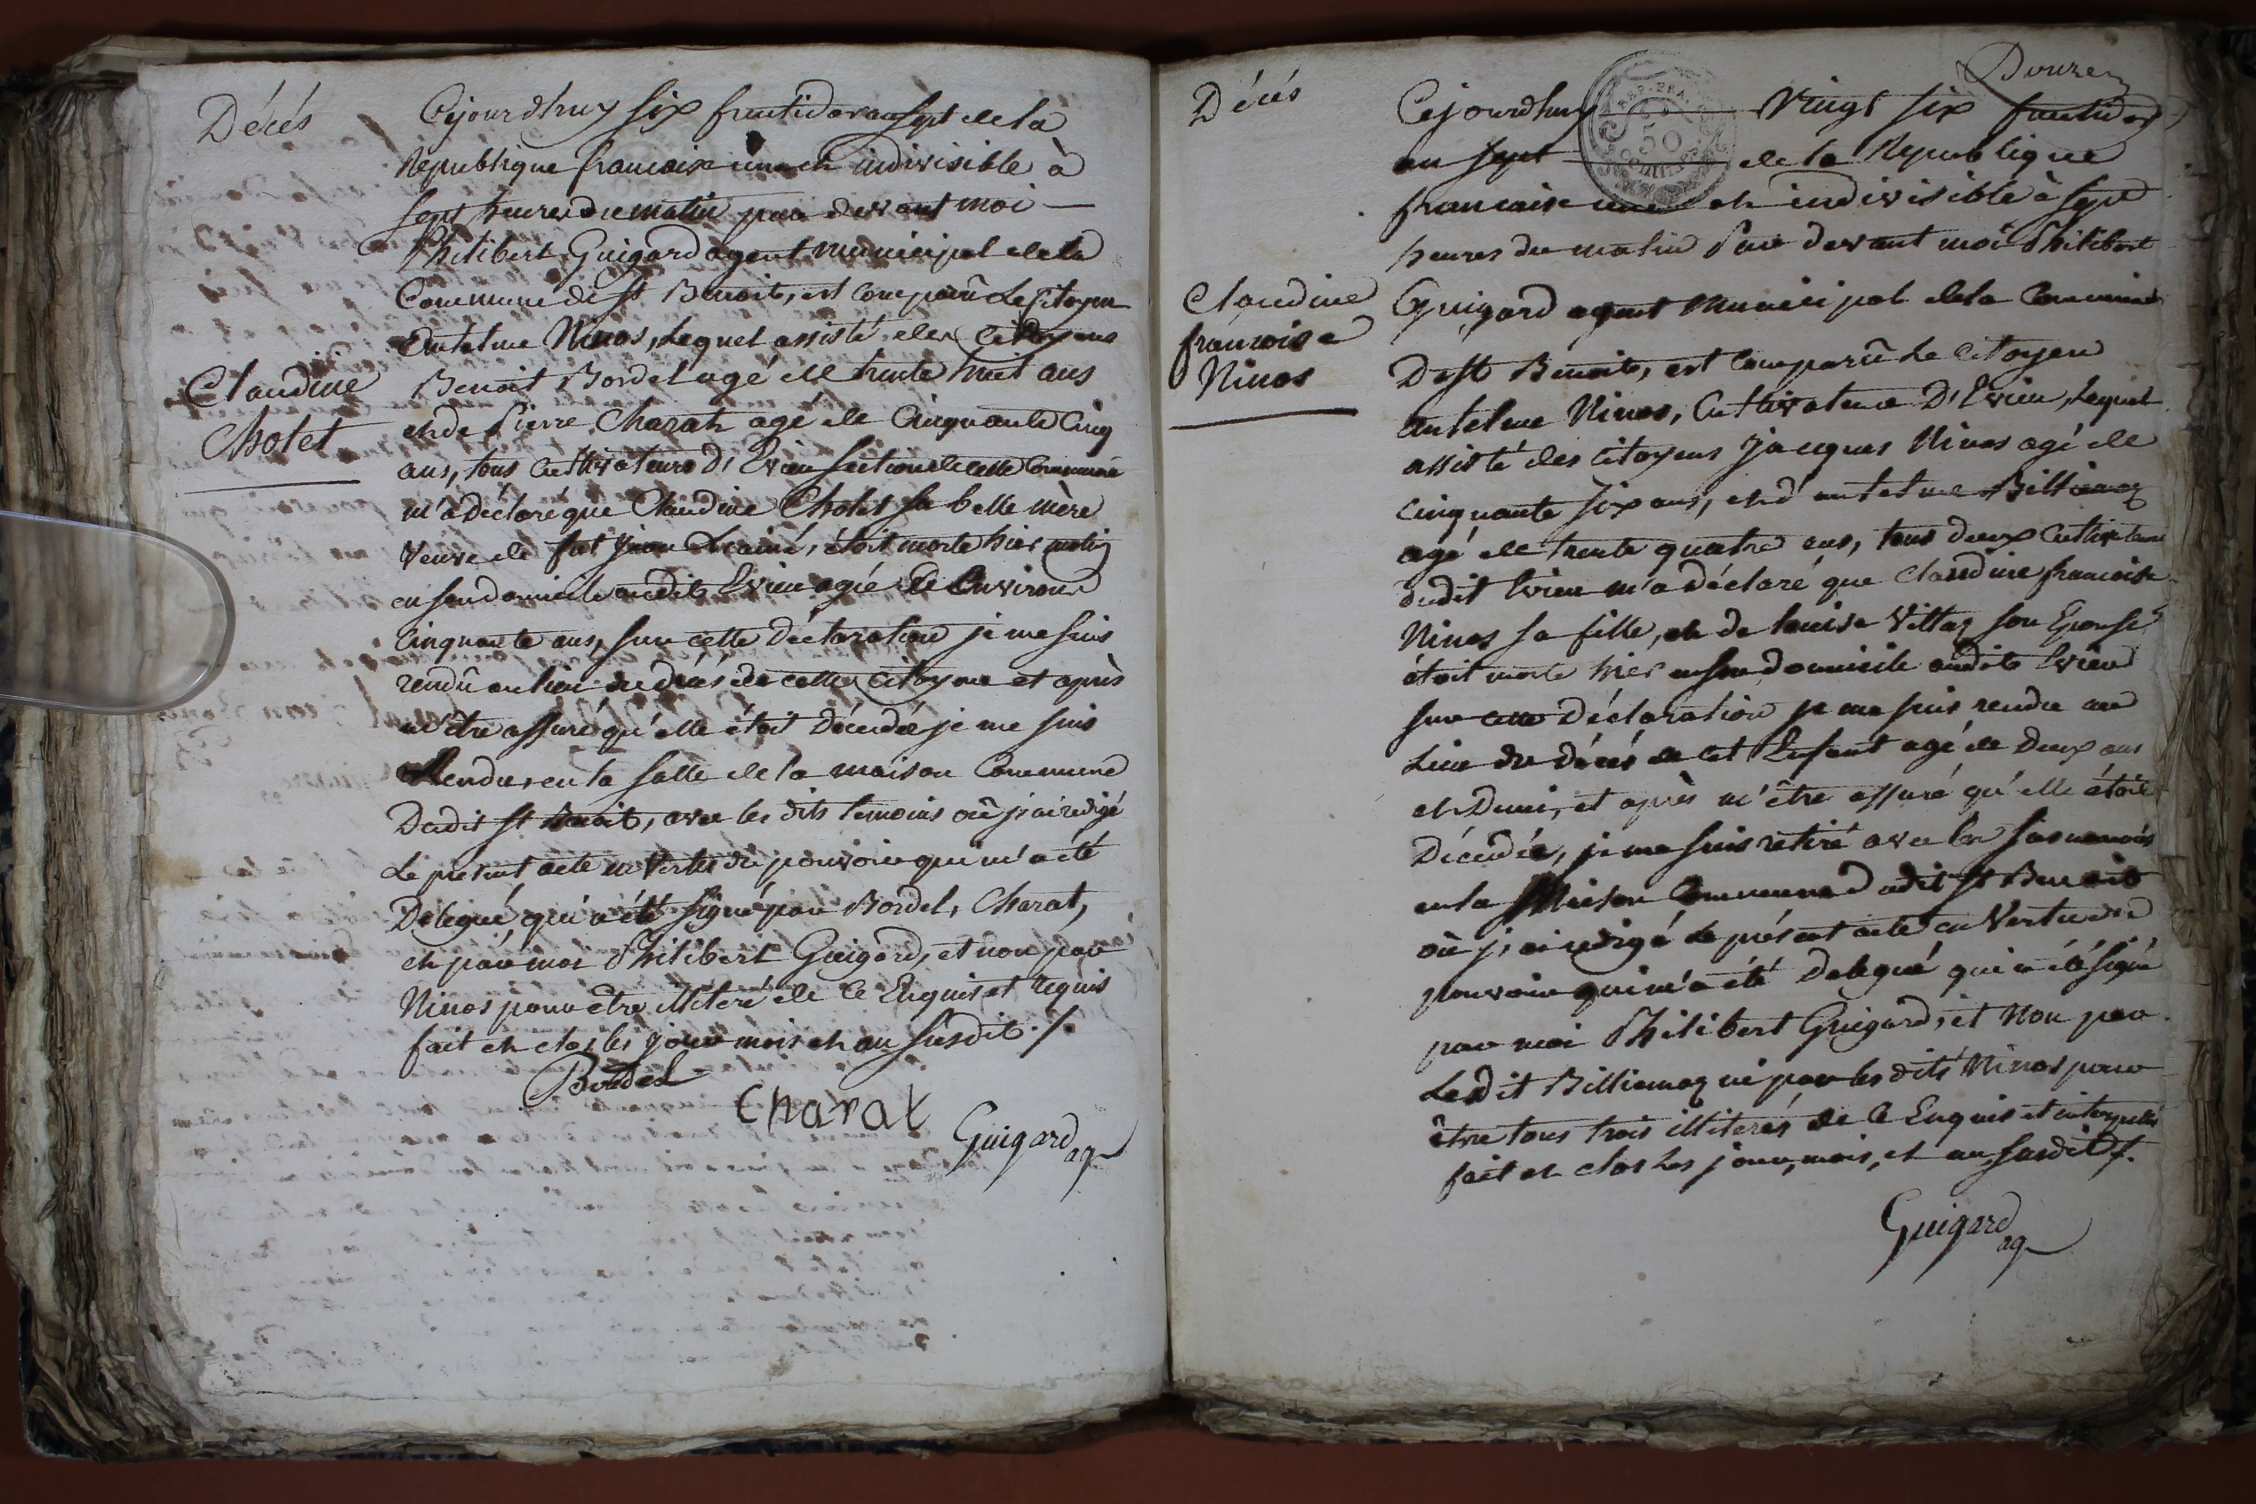 Décés
Claudine
Chotet
Cejourdhuy six fructidor an sept de la
Republique francaise une et indivisible à
sept heures du matin par devant moi
Philibert Guigard agent municipal de la
Commune de st Benoit, est comparû Le Citoyen
Antelme Ninos, Lequel assisté des Citoyens
Benoit Bordel agé de trente huit ans
et de Pierre Charat agé de Cinquante Cinq
ans, tous Cultivateurs D'Evieu section de cette Commune
m'a Déclaré que Claudine Chotet sa belle mère
Veuve de feu Lainé, étoit morte hier matin
en son domicile audit Evieu agée de Environ
Cinquante ans, sur cette Déclaration je me suis
rendû au lieu du décés de cette Citoyenne et après
m'être assuré qu'elle étoit Décédée je me suis
Rendu en la salle de la maison Commune
Dudit st Benoit, avec les dits temoins où j'ai redigé
Le présent acte en Vertu du pouvoir qui m'a été
Delegué, qui a été signé par Bordel, Charat,
et par moi Philibert Guigard, et non par
Ninos pour être illiteré de Ce Enquis et requis
fait et clos les jour mois et an susdit ./.
Bordel
Charat
Guigard ag
Douze
Décés
Claudine
francoise
Ninos
Cejourdhuy Vingt six fructidor
an sept de la Republique
francaise une et indivisible à sept
heures du matin Par devant moi Philibert
Guigard agent Municipal de la Commune
De st Benoit, est comparû Le Citoyen
Antelme Ninos, Cultivateur D'Evieu, Lequel
assisté des Citoyens Jacques Ninos agé de
Cinquante six ans, et d'antelme Billiemaz
agé de trente quatre ans, tous deux Cultivateurs
dudit Evieu m'a déclaré que Claudine francoise
Ninos sa fille, et de Louise Villaz son Epouse
étoit morte hier en son domicile audit Evieu
sur cette Déclaration je me suis rendu au
Lieu du décés de cet Enfant agé de Deux ans
et Demi, et après m'être assuré qu'elle étoit
Décédée, je me suis retiré avec les susnommés
en la Maison Commune dudit st Benoit
où j'ai redigé Le présent acte en Vertu du
pouvoir qui m'a été Delegué qui a été signé
par moi Philibert Guigard, et Non par
Ledit Billiemaz ni par les dits Ninos pour
être tous trois illiterés de Ce Enquis et interpellés
fait et clos Les jour, mois, et an susdit ./.
Guigard ag
REP. FRA.
50
CENTIMES